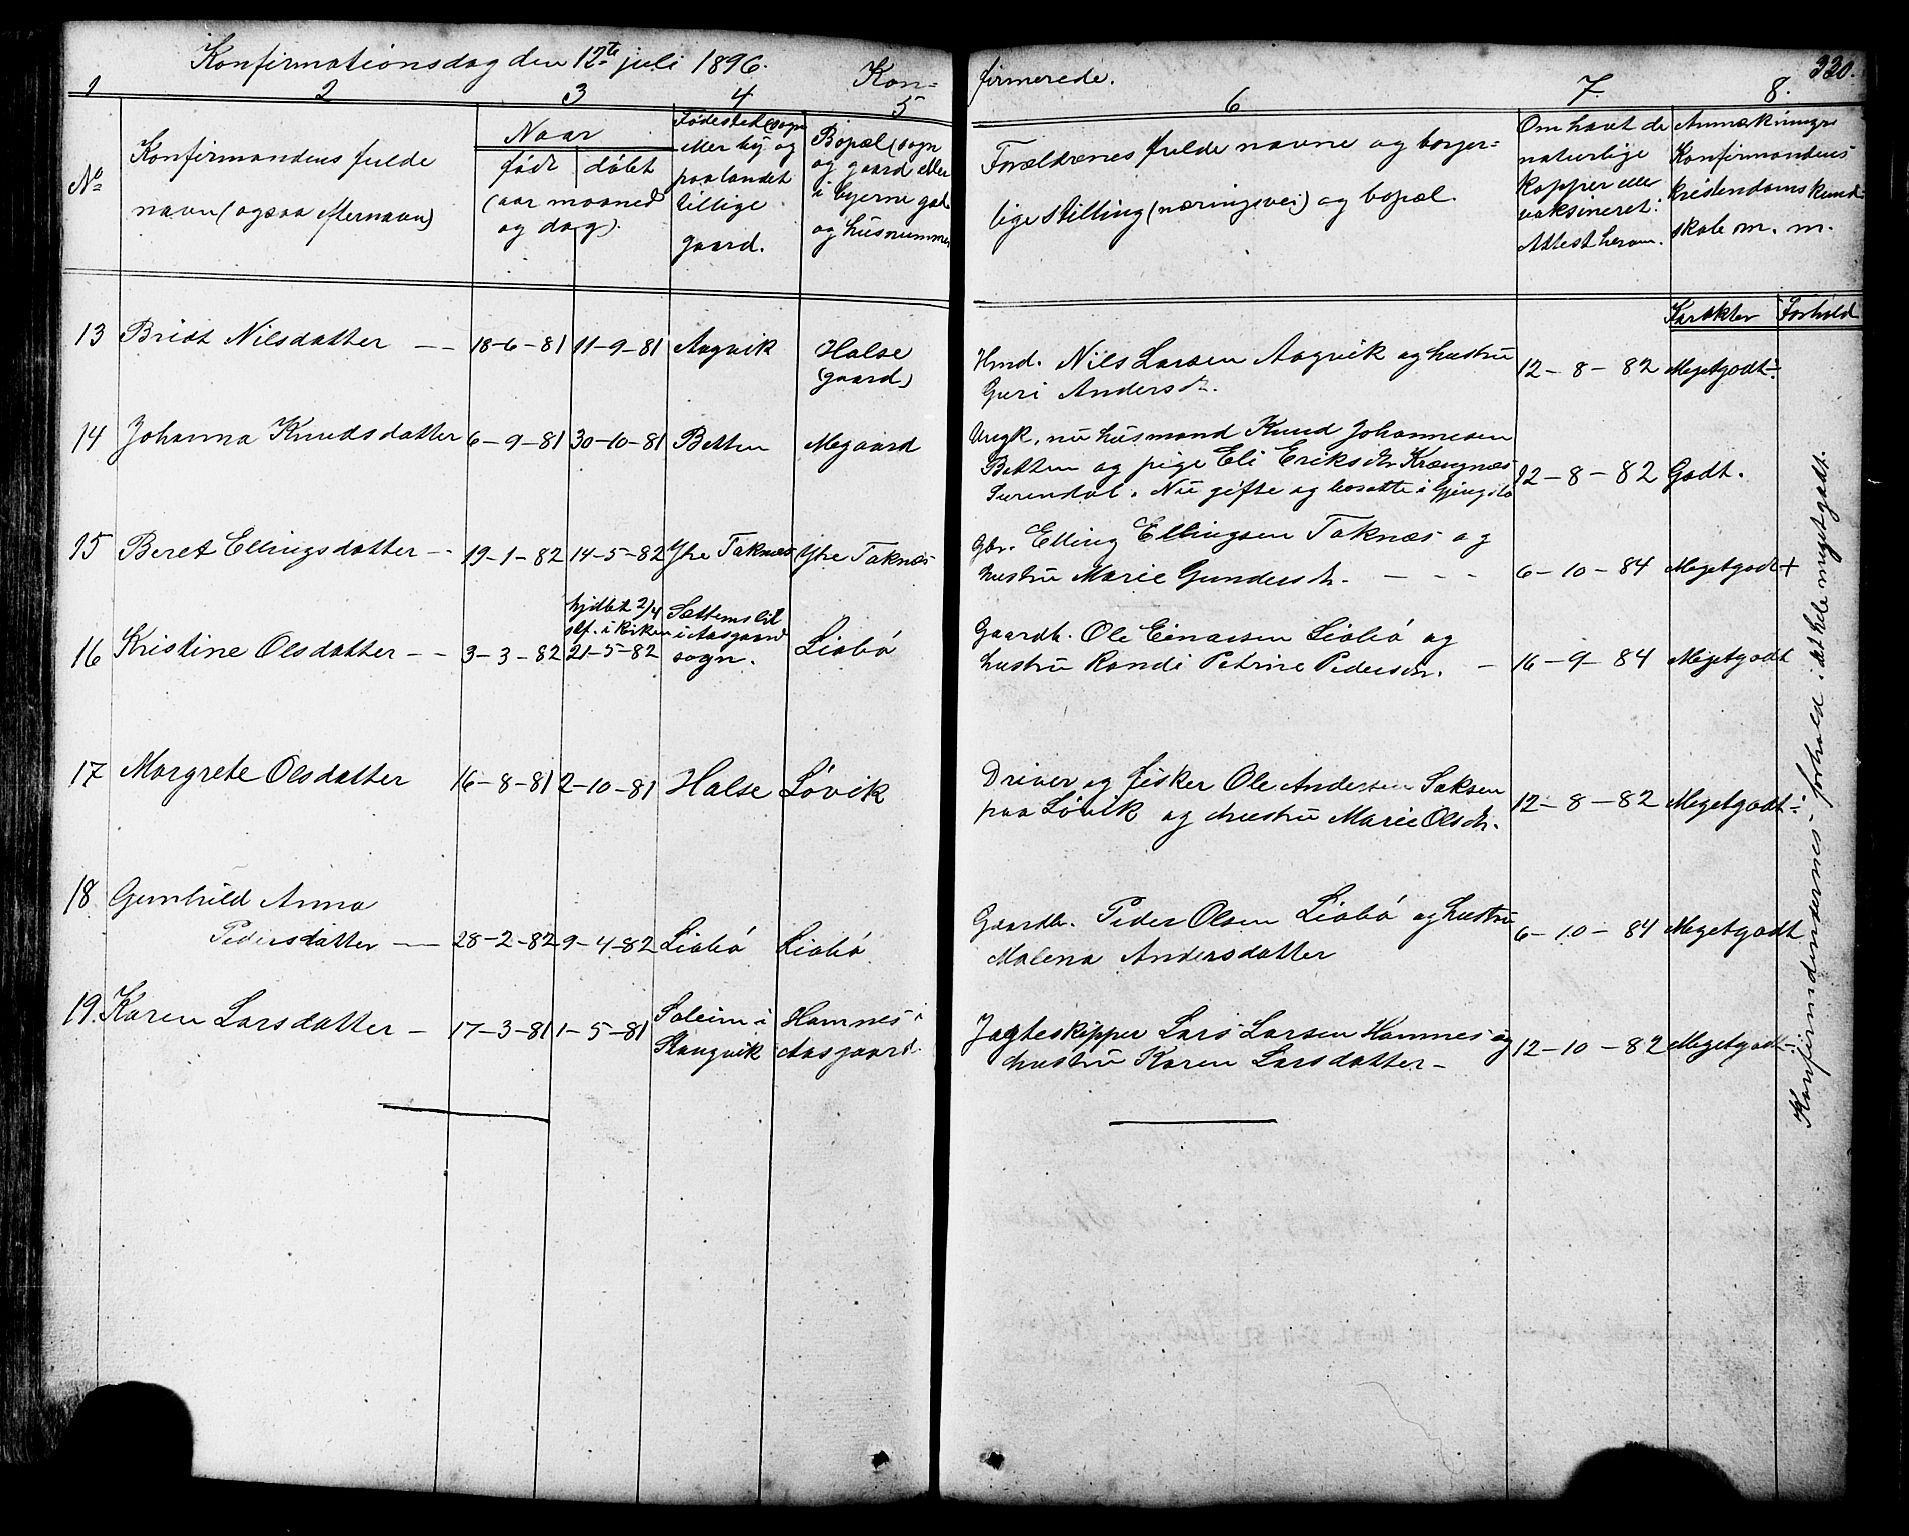 Konfirmationsdag den 12te juli 1896.
Kon-
firmerede.
330.
1 2 3 4 5 6 7. 8.
No
Konfirmandens fulde
navn (ogsaa efternavn)
Naar
født | døbt
(aar maaned
og dag).
Fødested (sogn
eller by og
paa landet
tillige
gaard.
Bopæl (sogn
og gaard eller
i byerne gade
og husnummer
Forældrenes fulde navne og borger=
lige stilling (næringsvei) og bopæl.
Om havt de
naturlige
kopper eller
vaksineret:
Attest herom.
Anmærkninger
Konfirmandens
kristendomskund-
skab m. m.
Karakter Forhold
13 Bridt Nilsdatter — — 18-6-81 11-9-81 Aagvik Halse
(gaard)
Hmd. Nils Larsen Aagvik og hustru
Guri Andersdt. 12-8-82 Megetgodt÷
14 Johanna Knudsdatter 6-9-81 30-10-81 Betten Megaard
Ungk. nu husmand Knud Johannesen
Betten og pige Eli Eriksdtr
Surendal. Nu gifte og bosatte i 12-8-82 Godt.
15 Beret Ellingsdatter — 19-1-82 14-5-82 Ytre Taknes Ytre Taknes
Gbr. Elling Ellingsen Taknæs og
hustru Marie Gundersdtr. — — — 6-10-84 Megetgodt+
16 Kristine Olsdatter — — 3-3-82
hjdbt 2/4
stf. i kirken
21-5-82
Sættemslid
i Aasgaard
sogn.
Liabø
Gaardb. Ole Einarsen Liabø og
hustru Randi Petrine Pedersdtr. — 16-9-84 Megetgodt
17 Margrete Olsdatter 16-8-81 2-10-81 Halse Løvik
Driver og fisker Ole Andersen Saksen
paa Løvik og hustru Marie Olsdtr. 12-8-82 Megetgodt÷
18 Gunhild Anna
Pedersdatter — 28-2-82 9-4-82 Liabø Liabø
Gaardb. Peder Olsen Liabø og hustru
Malena Andersdatter 6-10-84 Megetgodt
19. Karen Larsdatter — 17-3-81 1-5-81
Soleim i
Stangvik
Hamnes i
Aasgaard.
Jagteskipper Lars Larsen Hamnes og
hustru Karen Larsdatter — 12-10-82 Megetgodt÷
Konfirmandindernes forhold i det hele megetgodt.